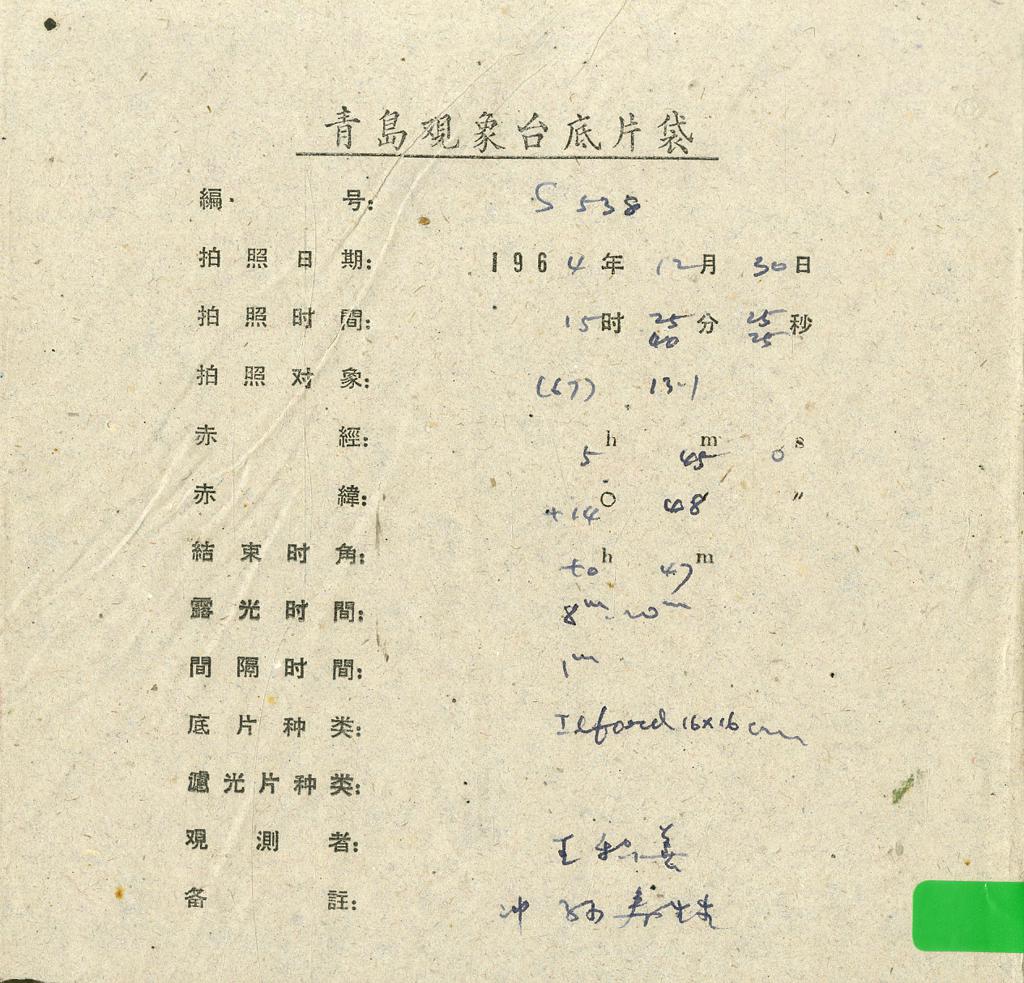 青島观象台底片袋
編号: S 538
拍照日期: 1964年 12月 30日
拍照时間: 15时 25分 25秒
40 25
拍照对象: (67) 13-1
赤經: 5h 45m 0s
赤緯: +14° 48′ ″
結束时角: +0h 47m
露光时間: 8m-10m
間隔时間: 1m
底片种类: Ilford 16×16cm
濾光片种类:
观測者: 王
备註: 冲